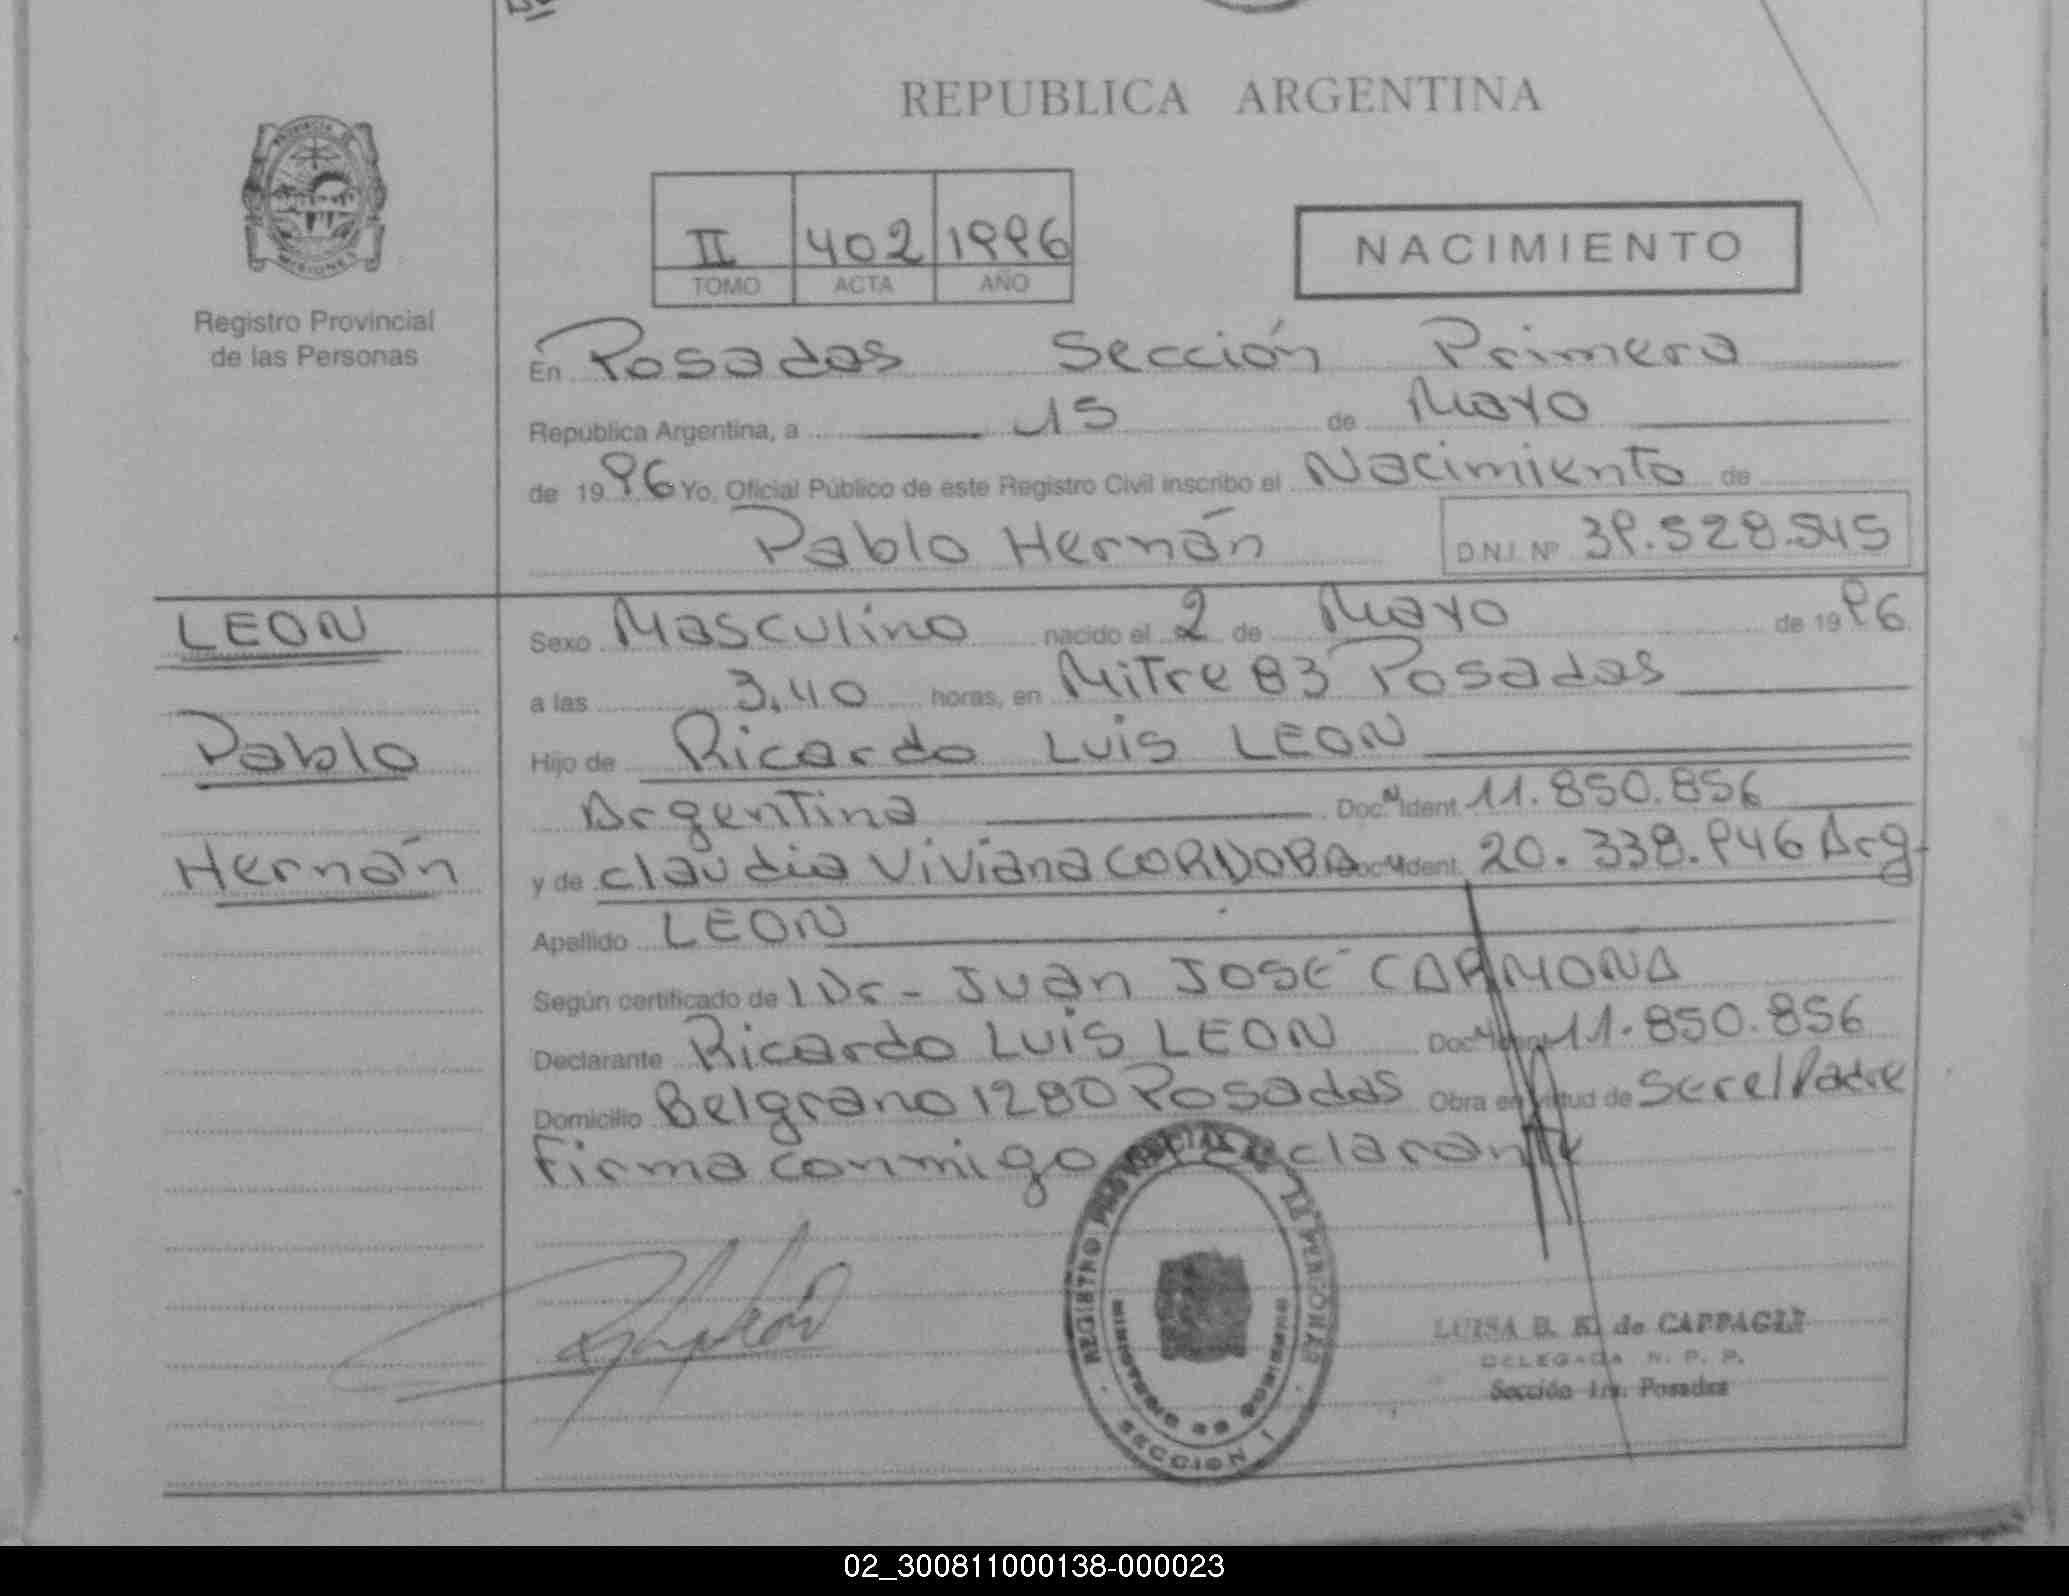 REPUBLICA ARGENTINA
PROVINCIA DE
MISIONES
Registro Provincial
de las Personas
II 402 1996
TOMO ACTA AÑO
NACIMIENTO
En Posadas Sección Primera
República Argentina, a 15 de Mayo
de 1996 Yo, Oficial Público de este Registro Civil inscribo el Nacimiento de
Pablo Hernán D.N.I. Nº 39.528.545
LEON
Pablo
Hernán
Sexo Masculino nacido el 2 de Mayo de 1996
a las 3,40 horas, en Mitre 83 Posadas
Hijo de Ricardo Luis LEON
Argentina Doc. Ident. 11.850.856
y de Claudia Viviana CORDOBA Doc. Ident. 20.338.946 Arg.
Apellido LEON
Según certificado de l Dr- Juan José CARMONA
Declarante Ricardo Luis LEON Doc. 11.850.856
Domicilio Belgrano 1280 Posadas Obra en virtud de Ser el Padre
Firma conmigo el Declarante
REGISTRO PROVINCIAL DE LAS PERSONAS
MINISTERIO DE GOBIERNO
SECCION I
LUISA B. K. de CAPPAGLI
DELEGADA R. P. P.
Sección 1ra. Posadas
02_300811000138-000023